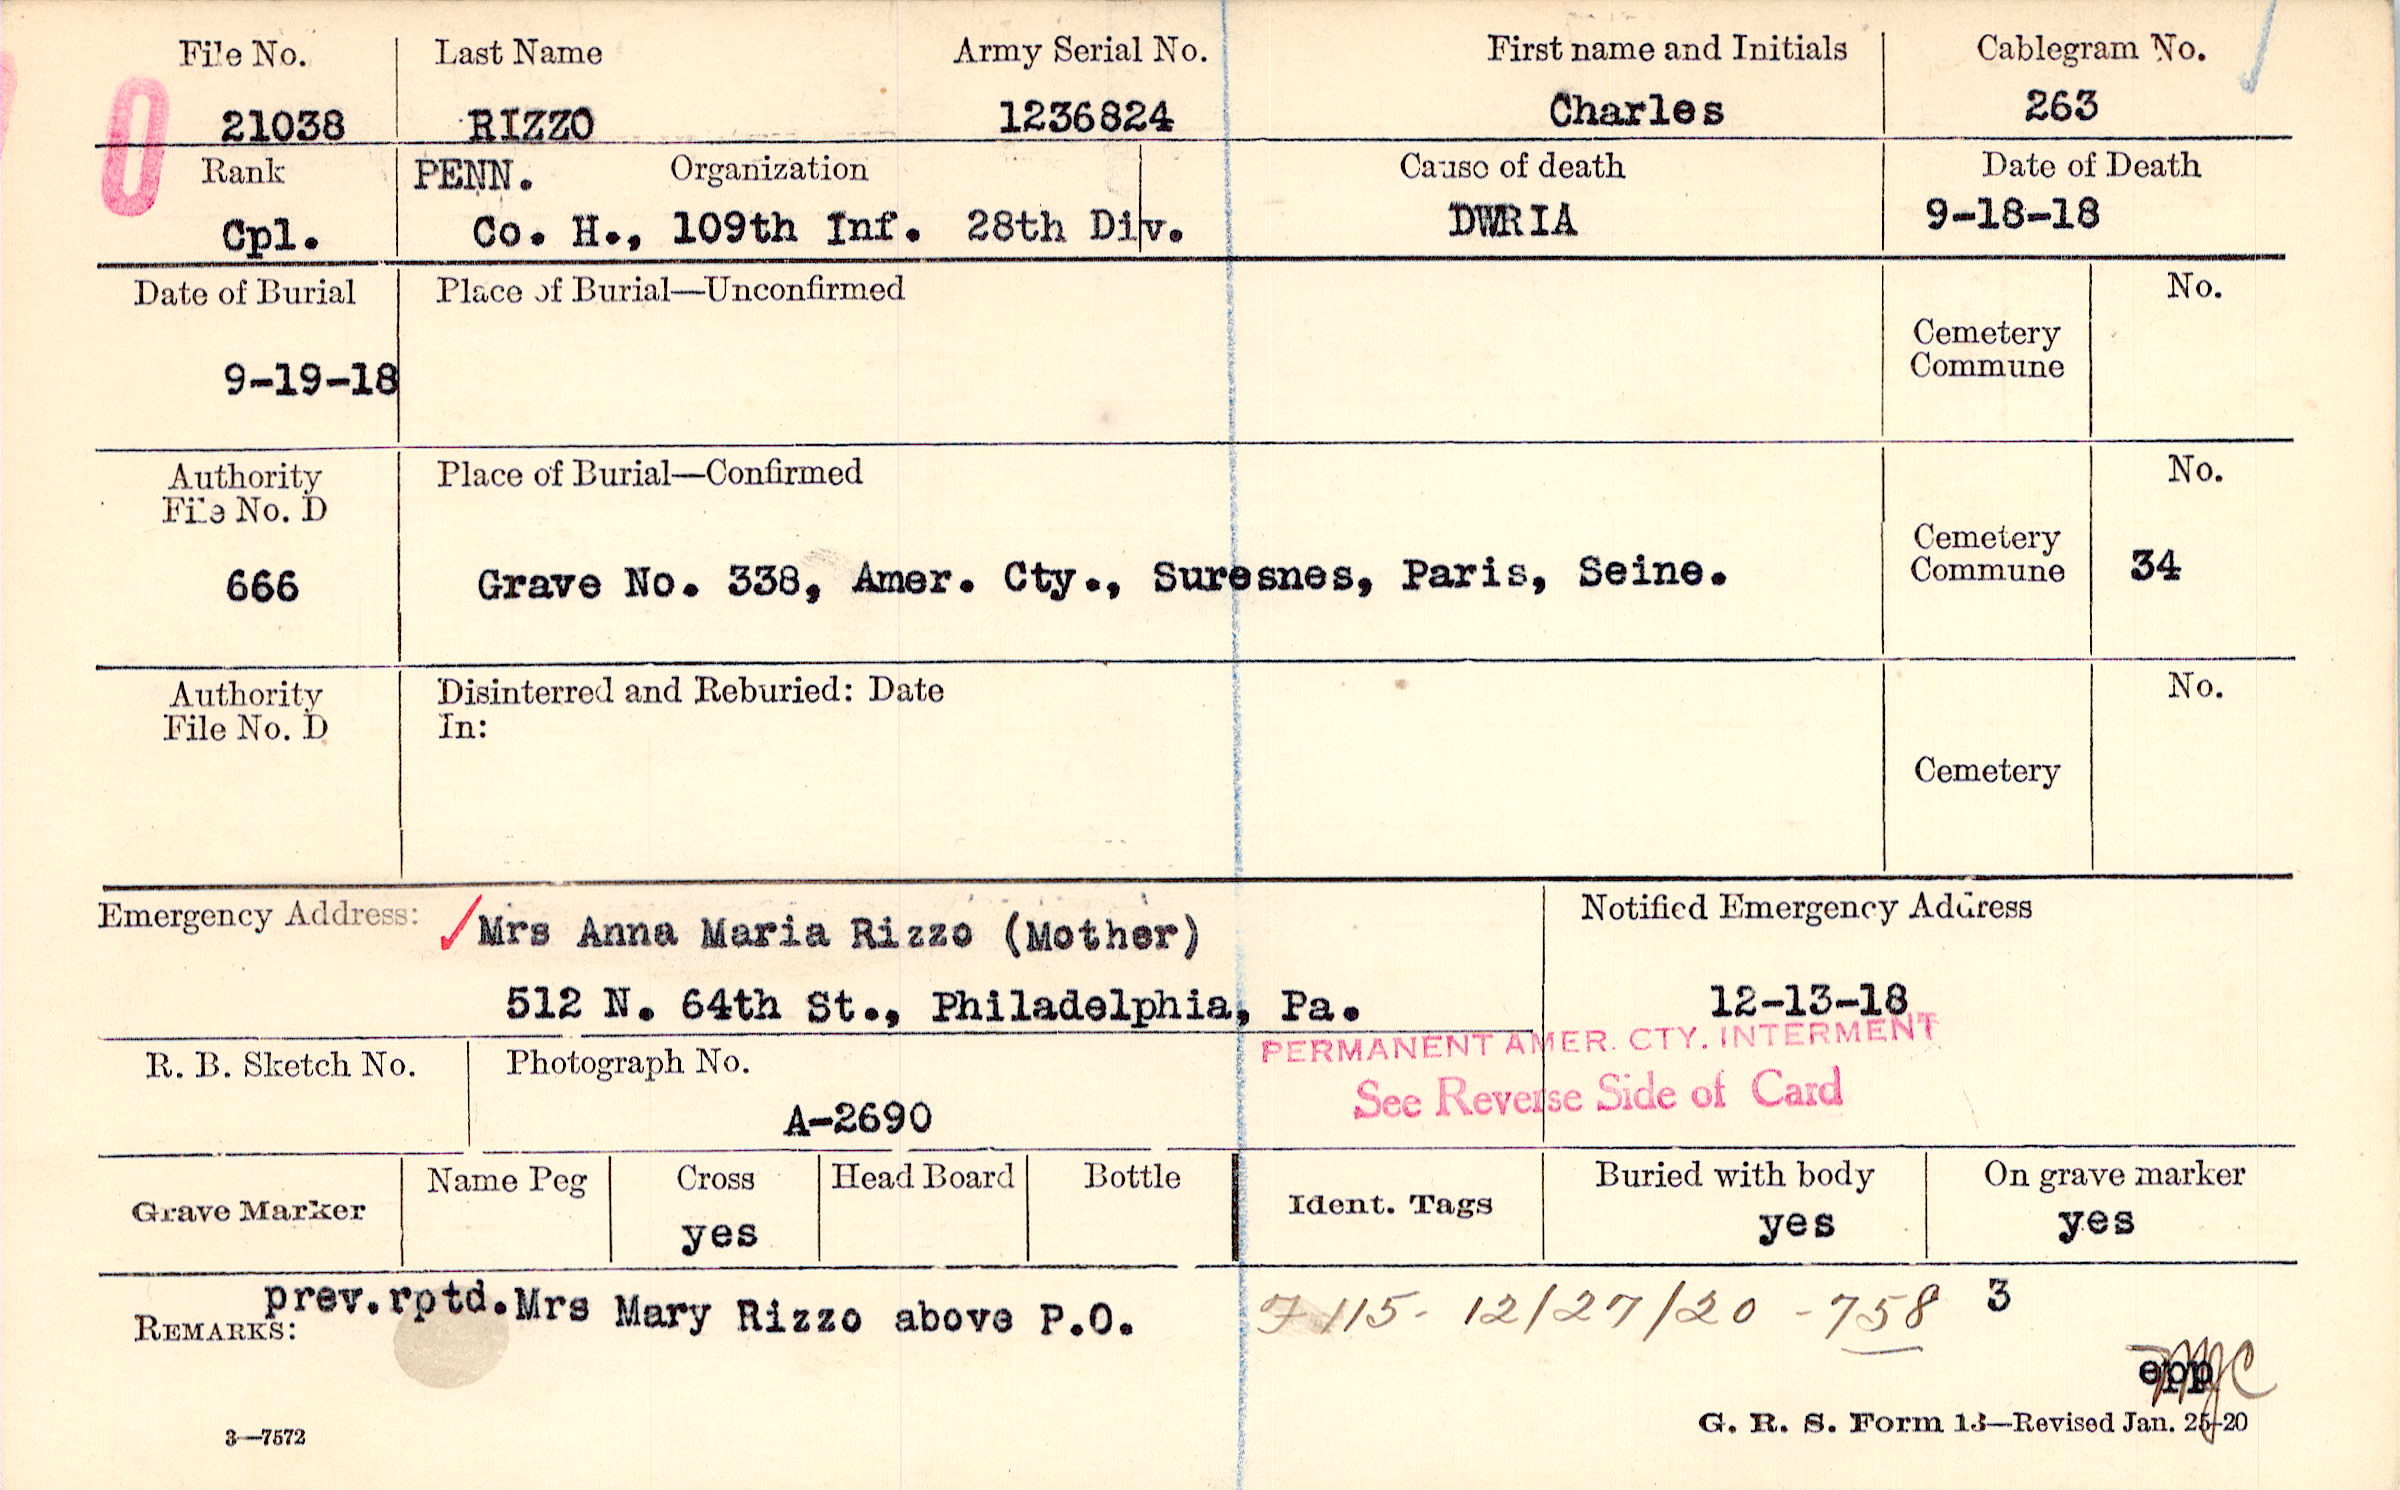 File No. Last Name Army Serial No. First name and Initials Cablegram No.
21038 RIZZO 1236824 Charles 263
Rank PENN. Organization Cause of death Date of Death
Cpl. Co. H., 109th Inf. 28th Div. DWRIA 9-18-18
Date of Burial Place of Burial—Unconfirmed No.
Cemetery
Commune
9-19-18
Authority Place of Burial—Confirmed No.
File No. D
Cemetery
666 Grave No. 338, Amer. Cty., Suresnes, Paris, Seine. Commune 34
Authority Disinterred and Reburied: Date No.
File No. D In:
Cemetery
Emergency Address: Mrs Anna Maria Rizzo (Mother) Notified Emergency Address
512 N. 64th St., Philadelphia, Pa. 12-13-18
PERMANENT AMER. CTY. INTERMENT
R. B. Sketch No. Photograph No.
See Reverse Side of Card
A-2690
Grave Marker Name Peg Cross Head Board Bottle Ident. Tags Buried with body On grave marker
yes yes yes
REMARKS: prev.rptd.Mrs Mary Rizzo above P.O. 115- 12/27/20 - 758 3
epp
3—7572 G. R. S. Form 13—Revised Jan. 25-20